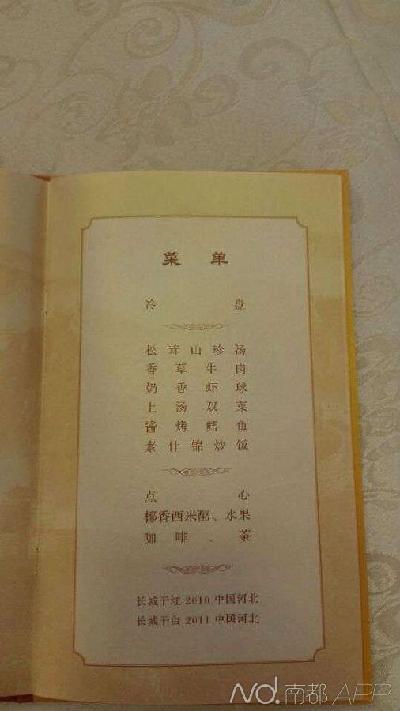 菜单
冷盘
松茸山珍汤
香草牛肉
奶香虾球
上汤双菜
酱烤鳕鱼
素什锦炒饭
点心
椰香西米酪、水果
咖啡、茶
长城干红 2010 中国河北
长城干白 2011 中国河北
ND.南都APP